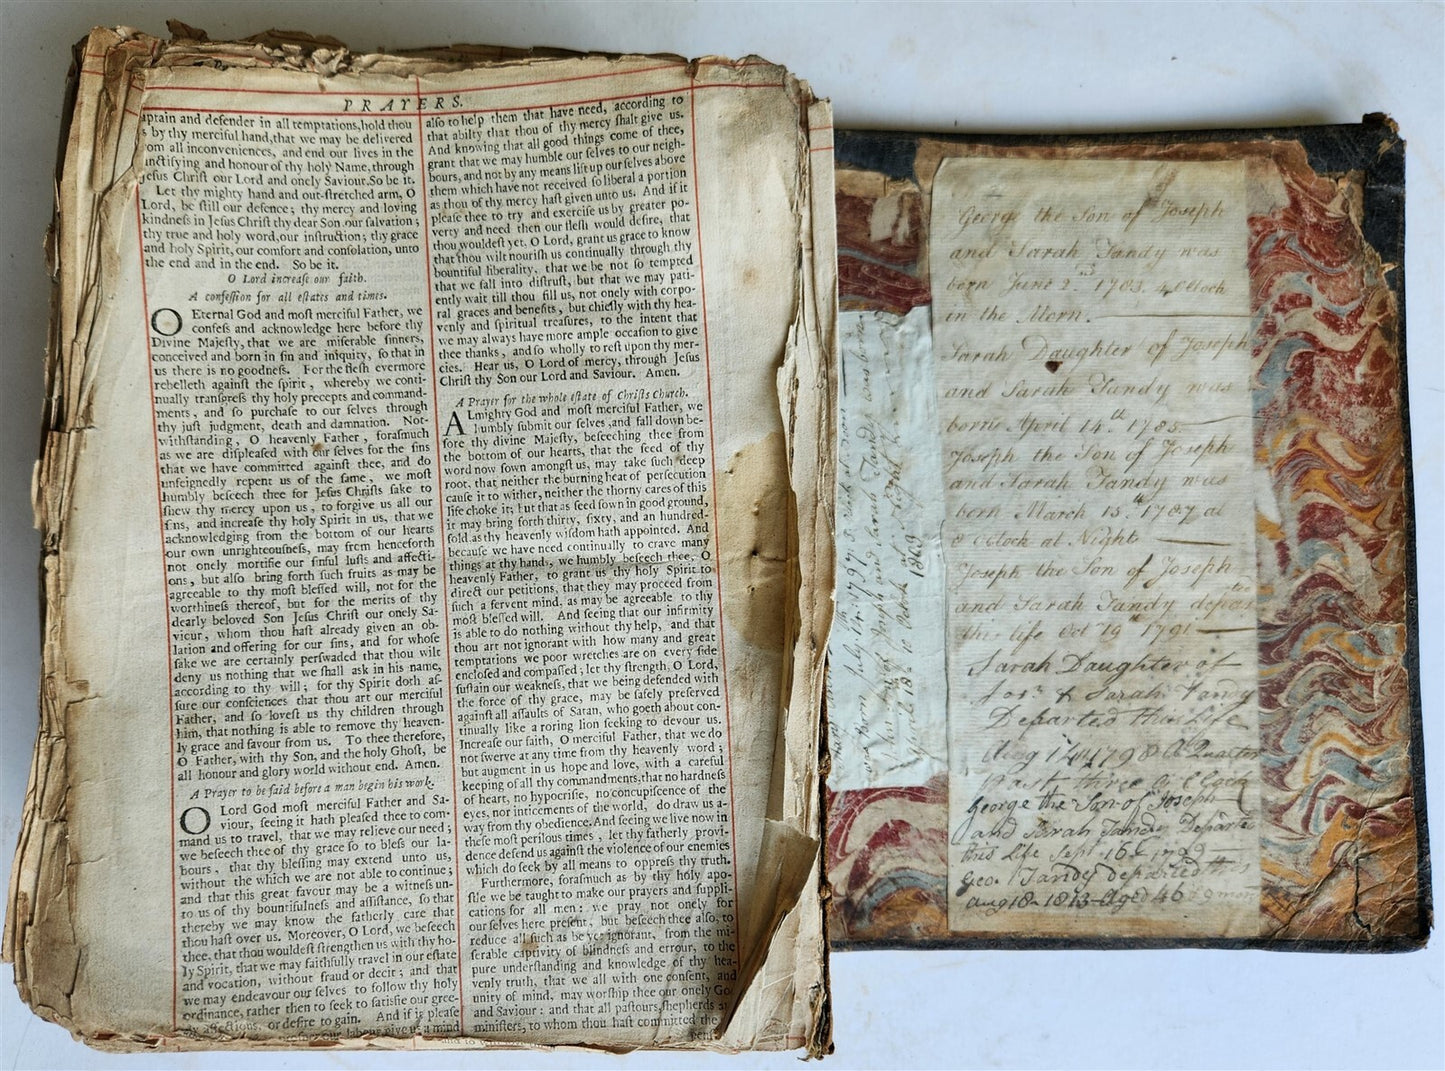 PRAYERS.
aptain and defender in all temptations, hold thou
s by thy merciful hand, that we may be delivered
om all inconveniences, and end our lives in the
inctifying and honour of thy holy Name, through
Jesus Christ our Lord and onely Saviour. So be it.
Let thy mighty hand and out-stretched arm, O
Lord, be still our defence; thy mercy and loving
kindness in Jesus Christ thy dear Son our salvation;
thy true and holy word, our instruction; thy grace
and holy Spirit, our comfort and consolation, unto
the end and in the end. So be it.
O Lord increase our faith.
A confession for all estates and times.
O Eternal God and most merciful Father, we
confess and acknowledge here before thy
Divine Majesty, that we are miserable sinners,
conceived and born in sin and iniquity, so that in
us there is no goodness. For the flesh evermore
rebelleth against the spirit, whereby we conti-
nually transgress thy holy precepts and command-
ments, and so purchase to our selves through
thy just judgment, death and damnation. Not-
withstanding, O heavenly Father, forasmuch
as we are displeased with our selves for the sins
that we have committed against thee, and do
unfeignedly repent us of the same, we most
humbly beseech thee for Jesus Christs sake to
shew thy mercy upon us, to forgive us all our
sins, and increase thy holy Spirit in us, that we
acknowledging from the bottom of our hearts
our own unrighteousness, may from henceforth
not onely mortifie our sinful lusts and affecti-
ons, but also bring forth such fruits as may be
agreeable to thy most blessed will, not for the
worthiness thereof, but for the merits of thy
dearly beloved Son Jesus Christ our onely Sa-
viour, whom thou hast already given an ob-
lation and offering for our sins, and for whose
sake we are certainly perswaded that thou wilt
deny us nothing that we shall ask in his name,
according to thy will; for thy Spirit doth as-
sure our consciences that thou art our merciful
Father, and so lovest us thy children through
him, that nothing is able to remove thy heaven-
ly grace and favour from us. To thee therefore,
O Father, with thy Son, and the holy Ghost, be
all honour and glory world without end. Amen.
A Prayer to be said before a man begin his work.
O Lord God most merciful Father and Sa-
viour, seeing it hath pleased thee to com-
mand us to travel, that we may relieve our need;
we beseech thee of thy grace so to bless our la-
bours, that thy blessing may extend unto us,
without the which we are not able to continue;
and that this great favour may be a witness un-
to us of thy bountifulness and assistance, so that
thereby we may know the fatherly care that
thou hast over us. Moreover, O Lord, we beseech
thee, that thou wouldest strengthen us with thy ho-
ly Spirit, that we may faithfully travel in our estate
and vocation, without fraud or deceit; and that
we may endeavour our selves to follow thy holy
ordinance, rather then to seek to satisfie our gree-
dy affections, or desire to gain. And if it please
our labour give us a mind
also to help them that have need, according to
that abilty that thou of thy mercy shalt give us.
And knowing that all good things come of thee,
grant that we may humble our selves to our neigh-
bours, and not by any means lift up our selves above
them which have not received so liberal a portion
as thou of thy mercy hast given unto us. And if it
please thee to try and exercise us by greater po-
verty and need then our flesh would desire, that
thou wouldest yet, O Lord, grant us grace to know
that thou wilt nourish us continually through thy
bountiful liberality, that we be not so tempted
that we fall into distrust, but that we may pati-
ently wait till thou fill us, not onely with corpo-
ral graces and benefits, but chiefly with thy hea-
venly and spiritual treasures, to the intent that
we may always have more ample occasion to give
thee thanks, and so wholly to rest upon thy mer-
cies. Hear us, O Lord of mercy, through Jesus
Christ thy Son our Lord and Saviour. Amen.
A Prayer for the whole estate of Christs Church.
ALmighty God and most merciful Father, we
humbly submit our selves, and fall down be-
fore thy divine Majesty, beseeching thee from
the bottom of our hearts, that the seed of thy
word now sown amongst us, may take such deep
root, that neither the burning heat of persecution
cause it to wither, neither the thorny cares of this
life choke it; but that as seed sown in good ground,
it may bring forth thirty, sixty, and an hundred-
fold as thy heavenly wisdom hath appointed. And
because we have need continually to crave many
things at thy hands, we humbly beseech thee, O
heavenly Father, to grant us thy holy Spirit to
direct our petitions, that they may proceed from
such a fervent mind, as may be agreeable to thy
most blessed will. And seeing that our infirmity
is able to do nothing without thy help, and that
thou art not ignorant with how many and great
temptations we poor wretches are on every side
enclosed and compassed; let thy strength, O Lord,
sustain our weakness, that we being defended with
the force of thy grace, may be safely preserved
against all assaults of Satan, who goeth about con-
tinually like a roring lion seeking to devour us.
Increase our faith, O merciful Father, that we do
not swerve at any time from thy heavenly word;
but augment in us hope and love, with a careful
keeping of all thy commandments, that no hardness
of heart, no hypocrisie, no concupiscence of the
eyes, nor inticements of the world, do draw us a-
way from thy obedience. And seeing we live now in
these most perilous times, let thy fatherly provi-
dence defend us against the violence of our enemies
which do seek by all means to oppress thy truth.
Furthermore, forasmuch as by thy holy apo-
stle we be taught to make our prayers and suppli-
cations for all men: we pray not onely for
our selves here present, but beseech thee also, to
reduce all such as be yet ignorant, from the mi-
serable captivity of blindness and errour, to the
pure understanding and knowledge of thy hea-
venly truth, that we all with one consent, and
unity of mind, may worship thee our onely Go
and Saviour: and that all pastours, shepherds a
ministers, to whom thou hast committed the
born July 14th 1797
Joseph and Sarah Tandy was born
1869
George the Son of Joseph
and Sarah Tandy was
born June 2d 1783. 4 oClock
in the Morn.
Sarah Daughter of Joseph
and Sarah Tandy was
born April 14th 1785
Joseph the Son of Joseph
and Sarah Tandy was
born March 15th 1787 at
8 oClock at Night
Joseph the Son of Joseph
and Sarah Tandy depar
this life Oct 19th 1791
Sarah Daughter of
Josh & Sarah Tandy
Departed this Life
Aug 14 1798 A Quarter
Past three O Clock
George the Son of Joseph
and Sarah Tandy Departe
this Life Sept 16
Geo. Tandy departed this
Aug 18 1813 Aged 46 & 9 mo